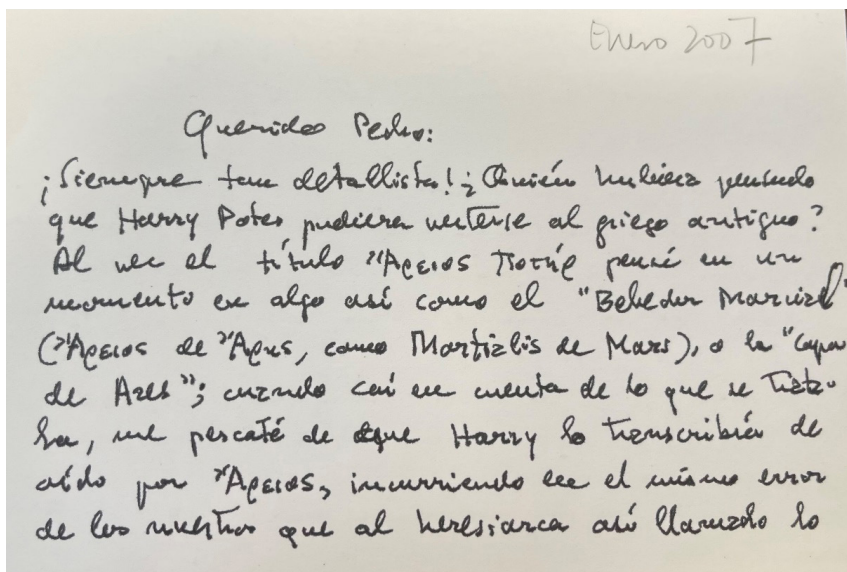 Enero 2007
Querido Pedro:
¡Siempre tan detallista! ¿Quién hubiera pensado
que Harry Poter pudiera verterse al griego antiguo?
Al ver el título Ἄρειος Ποτήρ pensé en un
momento en algo así como el "Bebedor Marcial"
(Ἄρειος de Ἄρης, como Martialis de Mars), o la "Copa
de Ares"; cuando caí en cuenta de lo que se trata-
ba, me percaté de que Harry lo transcribía de
oído por Ἄρειος, incurriendo en el mismo error
de los nuestros que al heresiarca así llamado lo